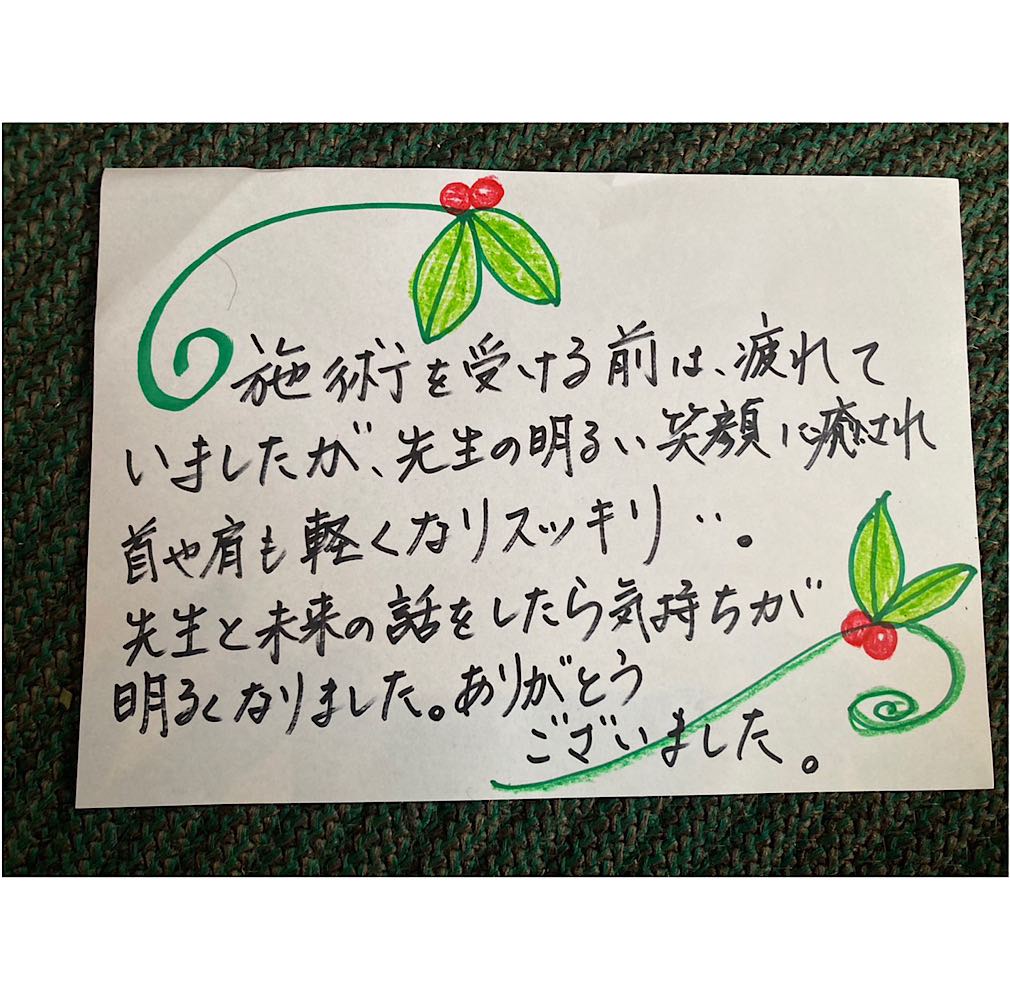 施術を受ける前は、疲れて
いましたが、先生の明るい笑顔に癒され
首や肩も軽くなりスッキリ‥。
先生と未来の話をしたら気持ちが
明るくなりました。ありがとう
ございました。